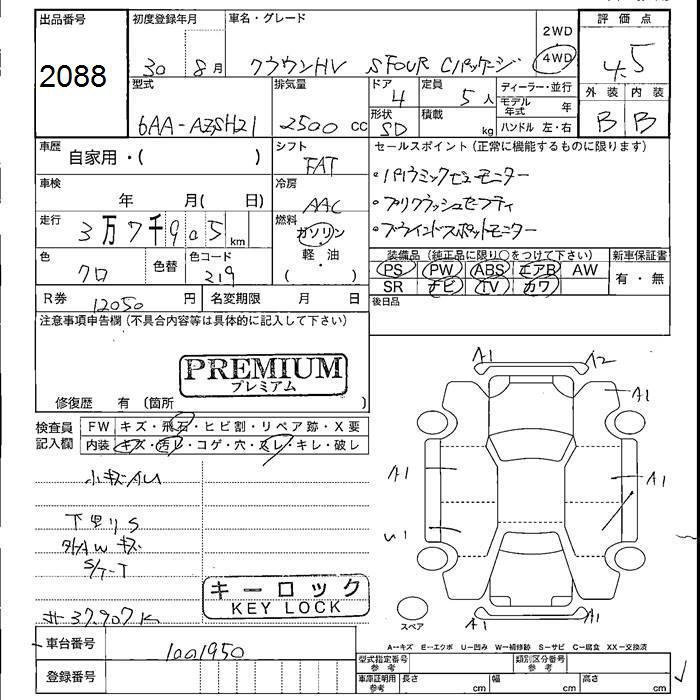 出品番号
2088
初度登録年月
30 8月
車名・グレード
クラウンHV SFOUR Cパッケージ
2WD
4WD
評価点
4.5
型式
6AA-AZSH21
排気量
2500 cc
ドア
4
形状
SD
定員
5人
積載
kg
ディーラー・並行
モデル年式 年
ハンドル 左・右
外装 内装
B B
車歴
自家用・( )
シフト
FAT
セールスポイント (正常に機能するものに限ります)
・パノラミックビューモニター
・プリクラッシュセーフティ
・ブラインドスポットモニター
車検
年 月( 日)
冷房
AAC
走行
3万7千9005km
燃料
ガソリン
軽・油
( )
色
クロ
色替
色コード
219
装備品 (純正品に限り○をつけて下さい)
PS PW ABS エアB AW
SR ナビ TV カワ
新車保証書
有・無
後日品
R券 12050 円
名変期限 月 日
注意事項申告欄 (不具合内容等は具体的に記入して下さい)
PREMIUM
プレミアム
修復歴 有 (箇所 )
検査員記入欄
FW キズ・飛石・ヒビ割・リペア跡・X要
内装 キズ・汚レ・コゲ・穴・スレ・キレ・破レ
小キズAU
下廻りS
外AWキズ
S/T-T
37,907K
キーロック
KEY LOCK
A1
A2
A1
A1
A1
U1
A1
A1
スペア
A…キズ E…エクボ U…凹み W…補修跡 S…サビ C…腐食 XX…交換済
車台番号
1001950
登録番号
型式指定番号 参考
類別区分番号 参考
車庫証明用 参考
長さ cm
幅 cm
高さ cm